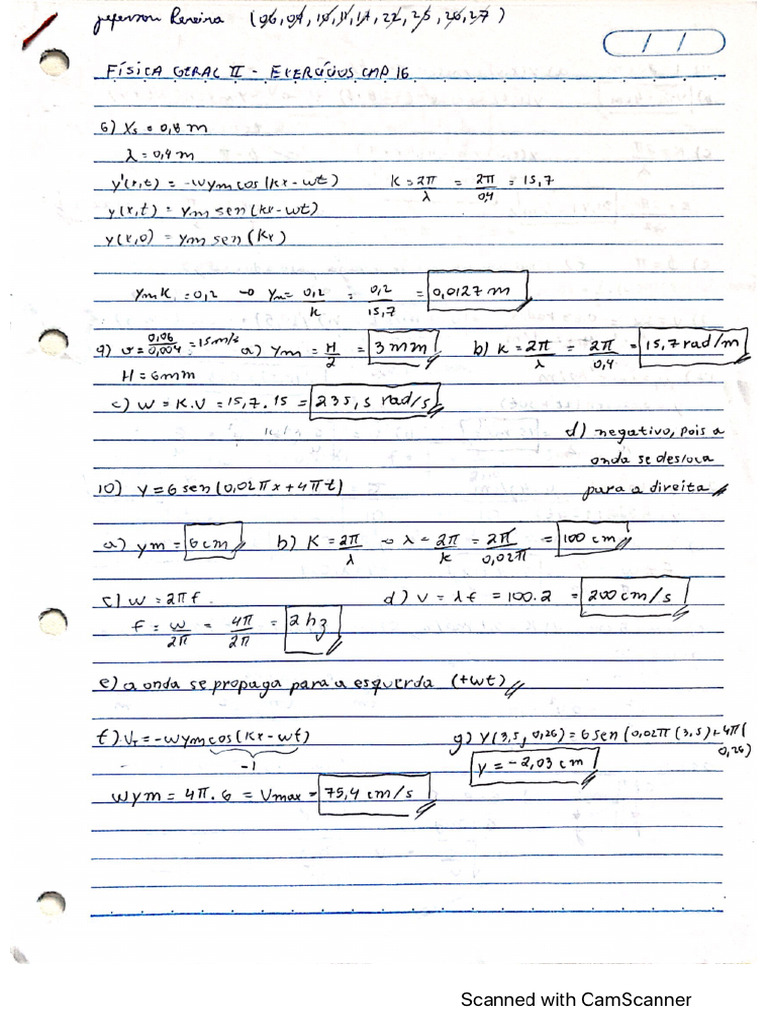 Jeferson Pereira (06, 09, 10, 11, 17, 22, 25, 26, 27)
/ /
FÍSICA GERAL II - EXERCÍCIOS CAP 16
6) Xs = 0,8 m
λ = 0,4 m
y'(x,t) = -wym cos(kx-wt) K = 2π/λ = 2π/0,4 = 15,7
y(x,t) = ym sen(kx-wt)
y(x,0) = ym sen(kx)
ym K = 0,2 → ym = 0,2/k = 0,2/15,7 = 0,0127 m
9) v = 0,06/0,004 = 15 m/s a) ym = H/2 = 3 mm b) K = 2π/λ = 2π/0,4 = 15,7 rad/m
H = 6mm
c) W = K.V = 15,7 . 15 = 235,5 rad/s
d) negativo, pois a
onda se desloca
10) y = 6 sen(0,02πx + 4πt) para a direita
a) ym = 6 cm b) K = 2π/λ → λ = 2π/k = 2π/0,02π = 100 cm
c) w = 2πf d) V = λf = 100.2 = 200 cm/s
f = w/2π = 4π/2π = 2 hz
e) a onda se propaga para a esquerda (+wt)
f) VT = -wym cos(kx-wt) g) y(3,5, 0,26) = 6 sen(0,02π(3,5) + 4π(
-1 0,26)
y = -2,03 cm
wym = 4π . 6 = Vmax = 75,4 cm/s
Scanned with CamScanner